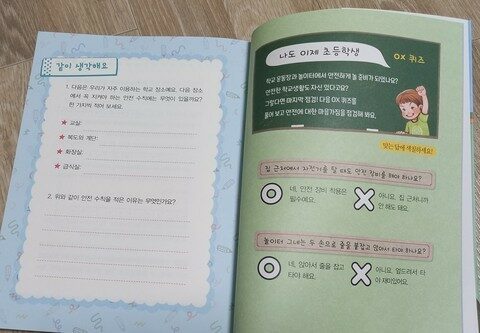 같이 생각해요
1. 다음은 우리가 자주 이용하는 학교 장소예요. 다음 장소
에서 꼭 지켜야 하는 안전 수칙에는 무엇이 있을까요?
한 가지씩 적어 보세요.
★ 교실:
★ 복도와 계단:
★ 화장실:
★ 급식실:
2. 위와 같이 안전 수칙을 적은 이유는 무엇인가요?
나도 이제 초등학생
OX 퀴즈
학교 운동장과 놀이터에서 안전하게 놀 준비가 되었나요?
안전한 학교생활도 자신 있다고요?
그렇다면 마지막 점검! 다음 OX 퀴즈를
풀어 보고 안전에 대한 마음가짐을 점검해 봐요.
맞는 답에 색칠하세요!
집 근처에서 자전거를 탈 때도 안전 장비를 해야 하나요?
O 네, 안전 장비 착용은
필수예요.
X 아니요. 집 근처니까
안 해도 돼요.
놀이터 그네는 두 손으로 줄을 붙잡고 앉아서 타야 하나요?
O 네, 앉아서 줄을 잡고
타야 해요.
X 아니요. 엎드려서 타
야 재미있어요.